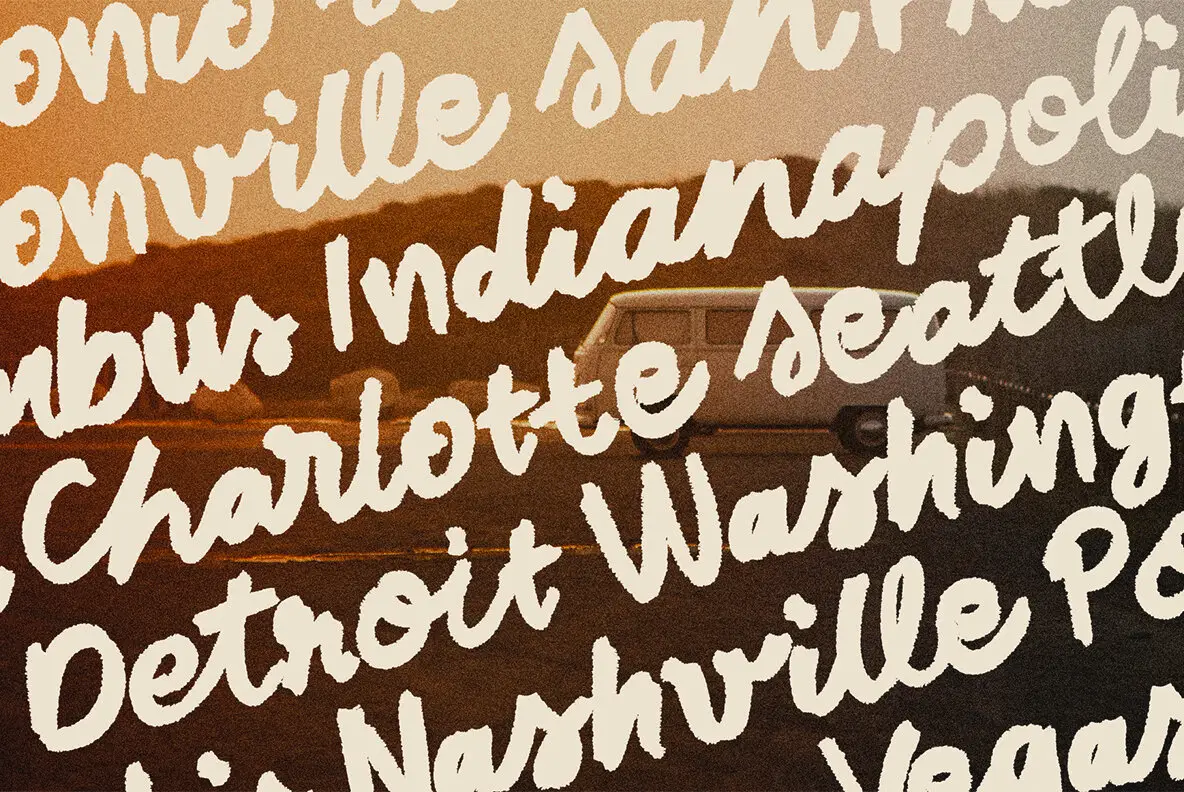 onio
onville San
mbus Indianapoli
Charlotte Seattl
Detroit Washingt
Nashville Po
Vegas